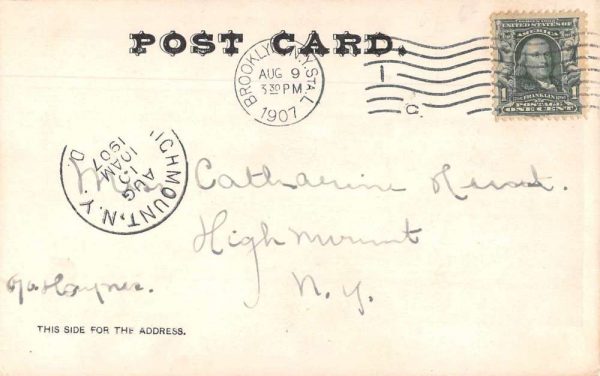 POST CARD.
BROOKLYN, N.Y. STA. L
AUG 9
3 30 PM
1907
1
C
UNITED STATES OF AMERICA
FRANKLIN
1 1
POSTAGE
ONE CENT
ICHMOUNT, N.Y.
AUG
10
10 AM
1907
D
Miss Catharine
Highmount
N.Y.
THIS SIDE FOR THE ADDRESS.